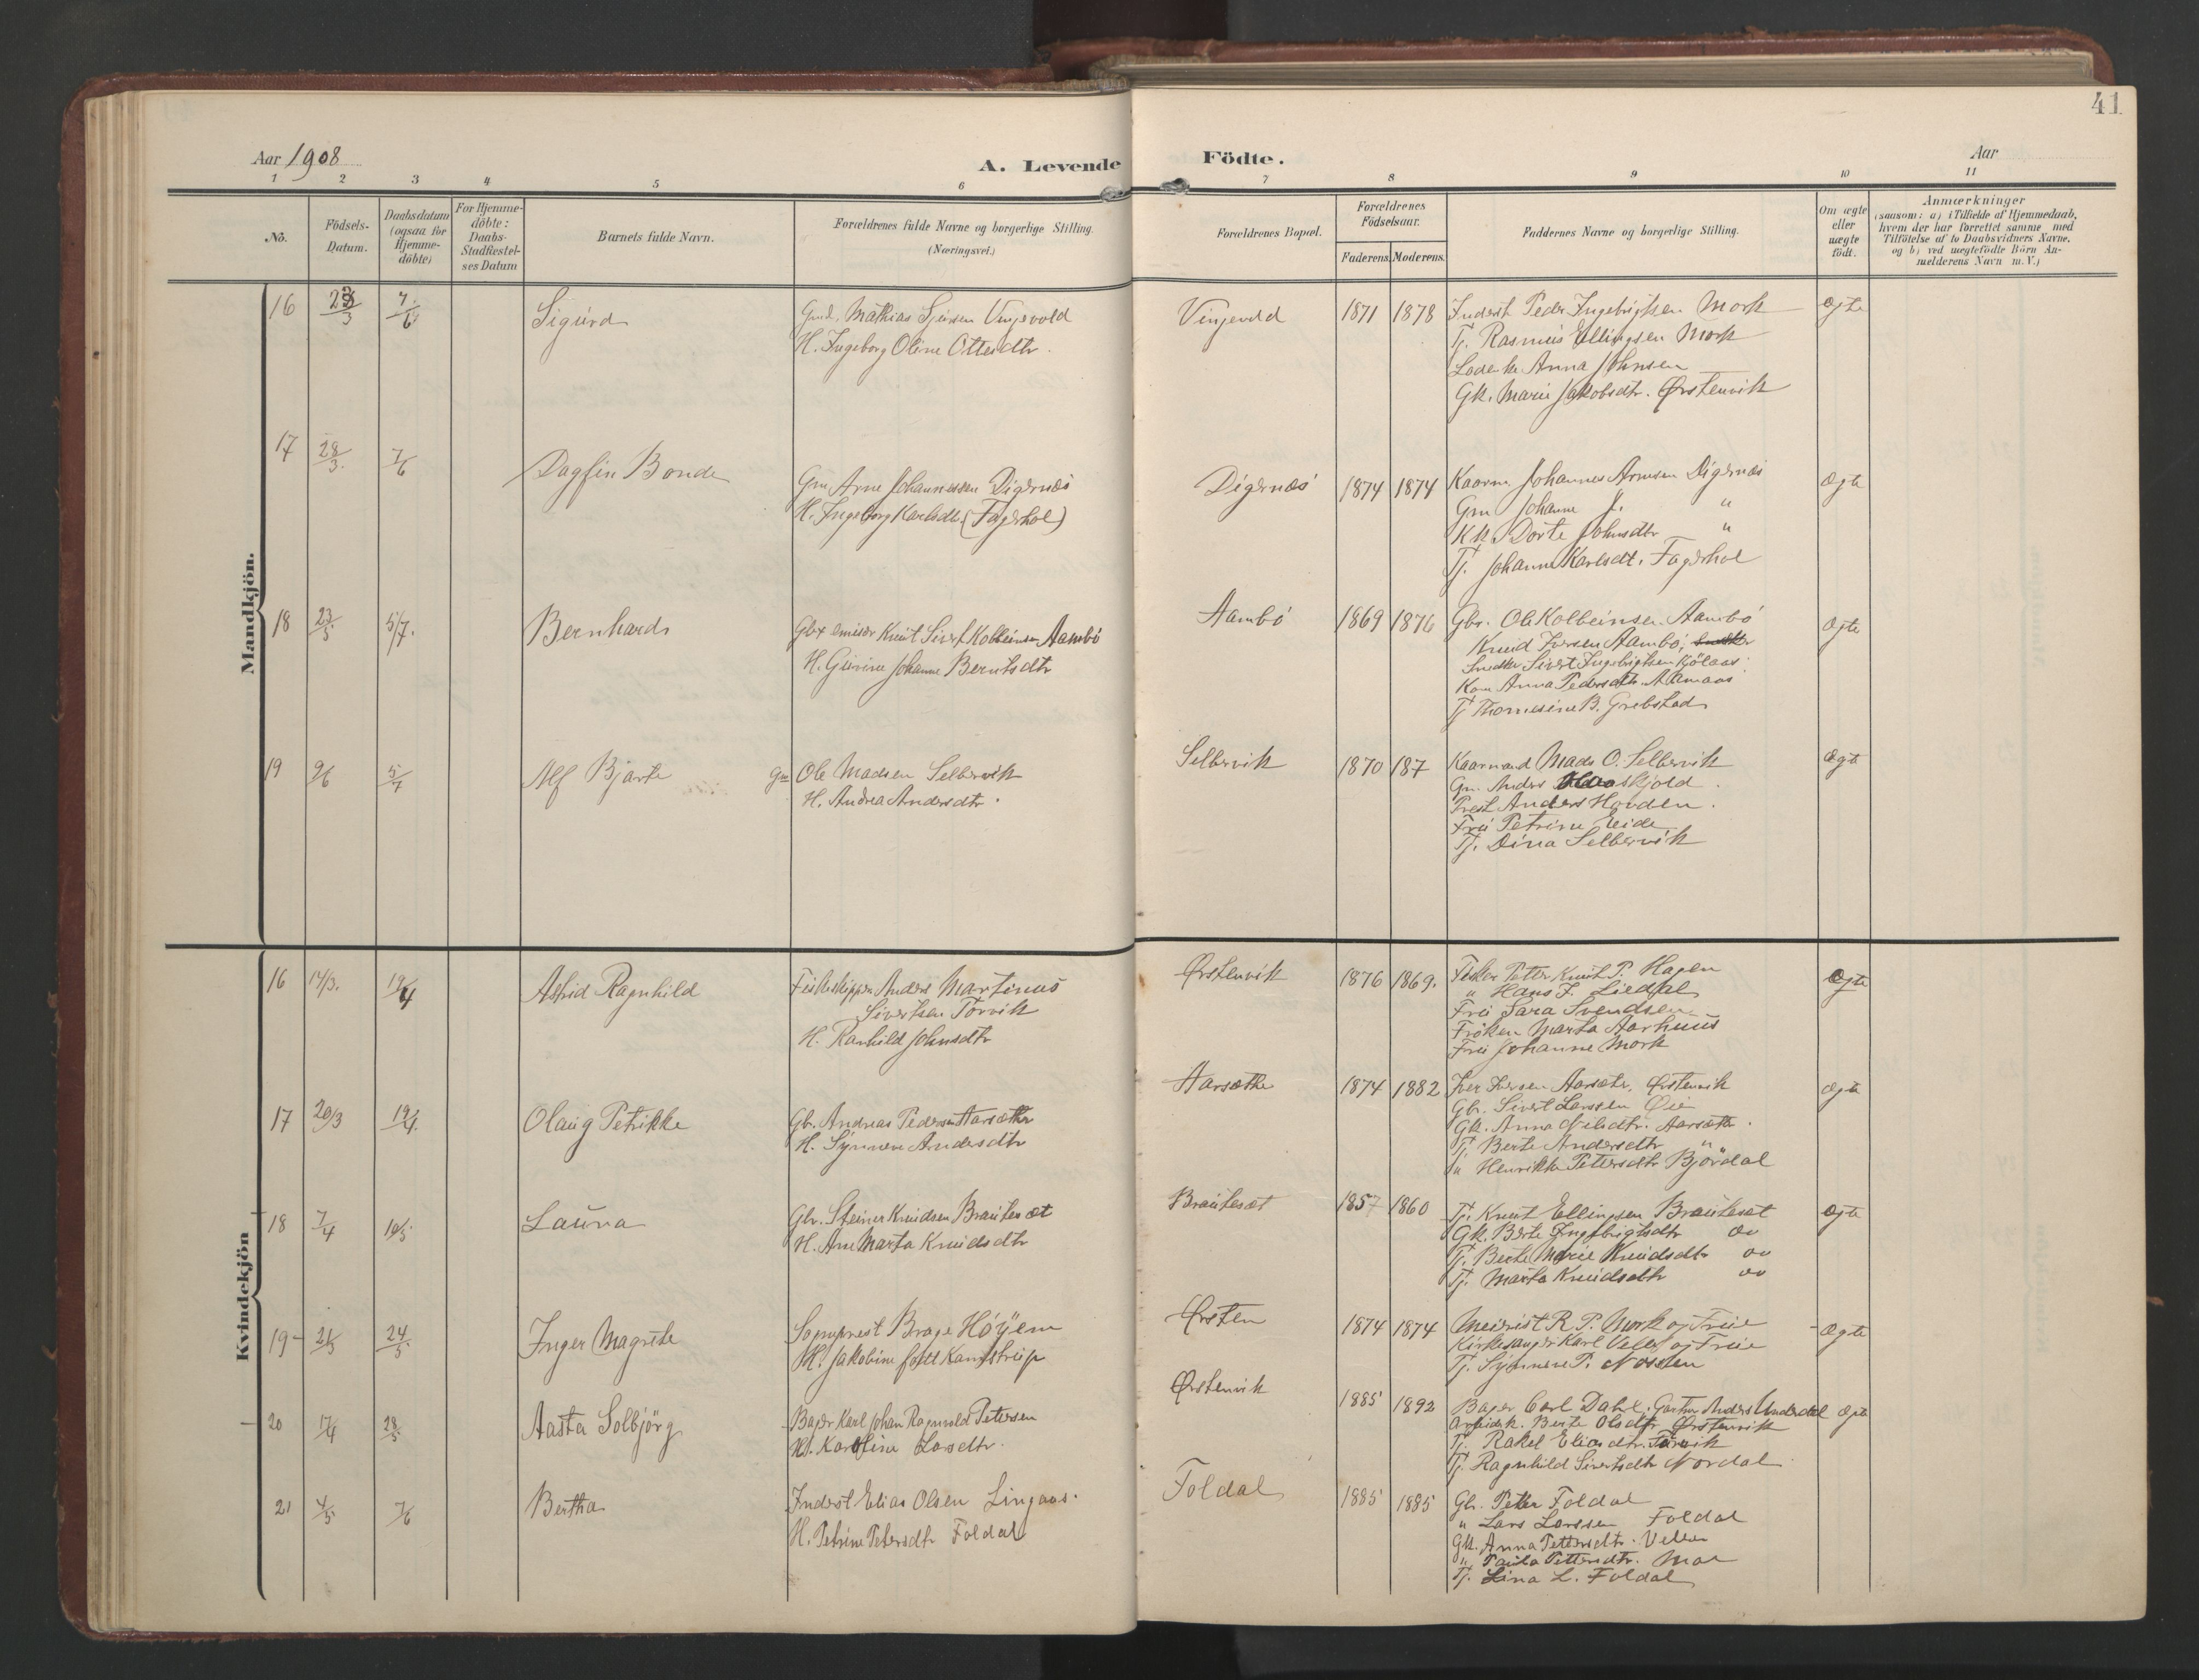 41
Aar 1908
A. Levende Födte.
Aar
1 2 3 4 5 6 7 8 9 10 11
No.
Födsels-Datum.
Daabsdatum (ogsaa for Hjemme-döbte)
For Hjemme-döbte: Daabs-Stadfæstel-ses Datum
Barnets fulde Navn.
Forældrenes fulde Navne og borgerlige Stilling.
(Næringsvei.)
Forældrenes Bopæl.
Forældrenes Födselsaar.
Faderens. Moderens.
Faddernes Navne og borgerlige Stilling.
Om ægte eller uægte födt.
Anmærkninger
(saasom: a) i Tilfælde af Hjemmedaab,
hvem der har forrettet samme med
Tilföielse af to Daabsvidners Navne,
og b) ved uægtefödte Börn An-
melderens Navn m. V.)
Mandkjön.
16 /3 7/6 Sigurd
Gmd. Mathias Vingevold
H. Ingeborg Oline Ottesdtr.
Vingevold 1871 1878
Inderst Peder Ingebrigtsen Mork
Tj. Rasmus Ellingsen Mork
Anna Johnsen
Gk. Marie Jakobsdtr. Ørstenvik
Ægte
17 28/3. 7/6 Dagfin Bonde
Gm. Arne Johannessen Digernæs
H. Ingeborg Karlsdtr. (Fagerhol)
Digernæs 1874 1874
Kaarm. Johannes Arnesen Digernæs
Gm Johanne J. "
Kk. Dorte Johnsdtr "
Tj. Johanne Karlsdt. Fagerhol
Ægte
18 23/5 5/7. Bernhard
Gbr emisær Knut Sivert Kolbeinsen Aambö
H. Gurine Johanne Berntsdtr
Aambö 1869 1876
Gbr. Ole Kolbeinsen Aambö
Knud Iversen Aambö,
Snedker Sivert Ingebrigtsen Kjölaas
Kam Anna Pedersdtr. Aamaas
Tj Thomesine B. Grebstad
Ægte
19 9/6 5/7 Alf Bjarte
Gm Ole Madsen Selbervik
H. Andrea Andersdtr.
Selbervik 1870 187
Kaarmand Mads O. Selbervik
Gm. Anders
Prest Anders Hovden.
Fru Petrine Eide
Tj. Dina Selbervik
Ægte
Kvindekjön
16 14/3. 19/4 Astrid Ragnhild
Fiskeskipper Anders Martinus
Sivertsen Torvik
H. Ranhild Johnsdtr
Ørstenvik 1876 1869.
Fisker Petter Knut P. Hagen
" Hans J. Liedal
Fru Sara Svendsen
Fröken Marta Aarhuus
Fru Johanne Mork
Ægte
17 20/3 19/4. Olaug Petrikke
Gbr. Andreas Pedersen Aarsæther
H. Synnøve Andersdtr
Aarsæther 1874 1882
Iver Iversen Aarsæte, Ørstenvik
Gbr. Sivert Larssen Öie
Gk. Anna Nilsdtr. Aarsæth.
Tj. Berte Andersdtr "
" Henrikke Petersdtr Björdal
Ægte
18 7/4 10/5 Laura
Gbr. Steiner Knudsen Brautesæt
H. Ane Marta Knudsdtr
Brautesæt 1857 1860
Tj. Knut Ellingsen Brautesæt
Gk. Berte Ingebrigtsdtr do
Tj. Berte Marie Knudsdtr do
Tj. Marta Knudsdtr do
Ægte
19 21/3 24/5. Inger Magrete
Sogneprest Brage Höyem
H. Jakobine født Kamstrup
Ørsten 1874 1874
Meierist R. P. Mork og Frue
Kirkesanger Karl Velle og Frue
Tj. Synnøve P.
Ægte
20 17/4 28/5. Aasta Solbjörg
Bager Karl Johan Ragnvald Petersen
H. Karoline Larsdtr.
Ørstenvik 1885 1892
Bager Carl Dahl. Gartner Anders Underdal
Arbeidsk. Berte Olsdtr Ørstenvik
Tj. Rakel Eliasdtr. Torvik
Tj. Ragnhild Sivertsdtr Nordal
Ægte
21 4/5 7/6 Bertha
Inderst Elias Olsen Lingaas.
H. Petrine Petersdtr Foldal
Foldal 1885 1885
Gbr. Peter Foldal
" Lars Larssen Foldal
Gk. Anna Pettersdtr. Velle
" Paula Pettersdtr. Moe
Tj. Lina L. Foldal